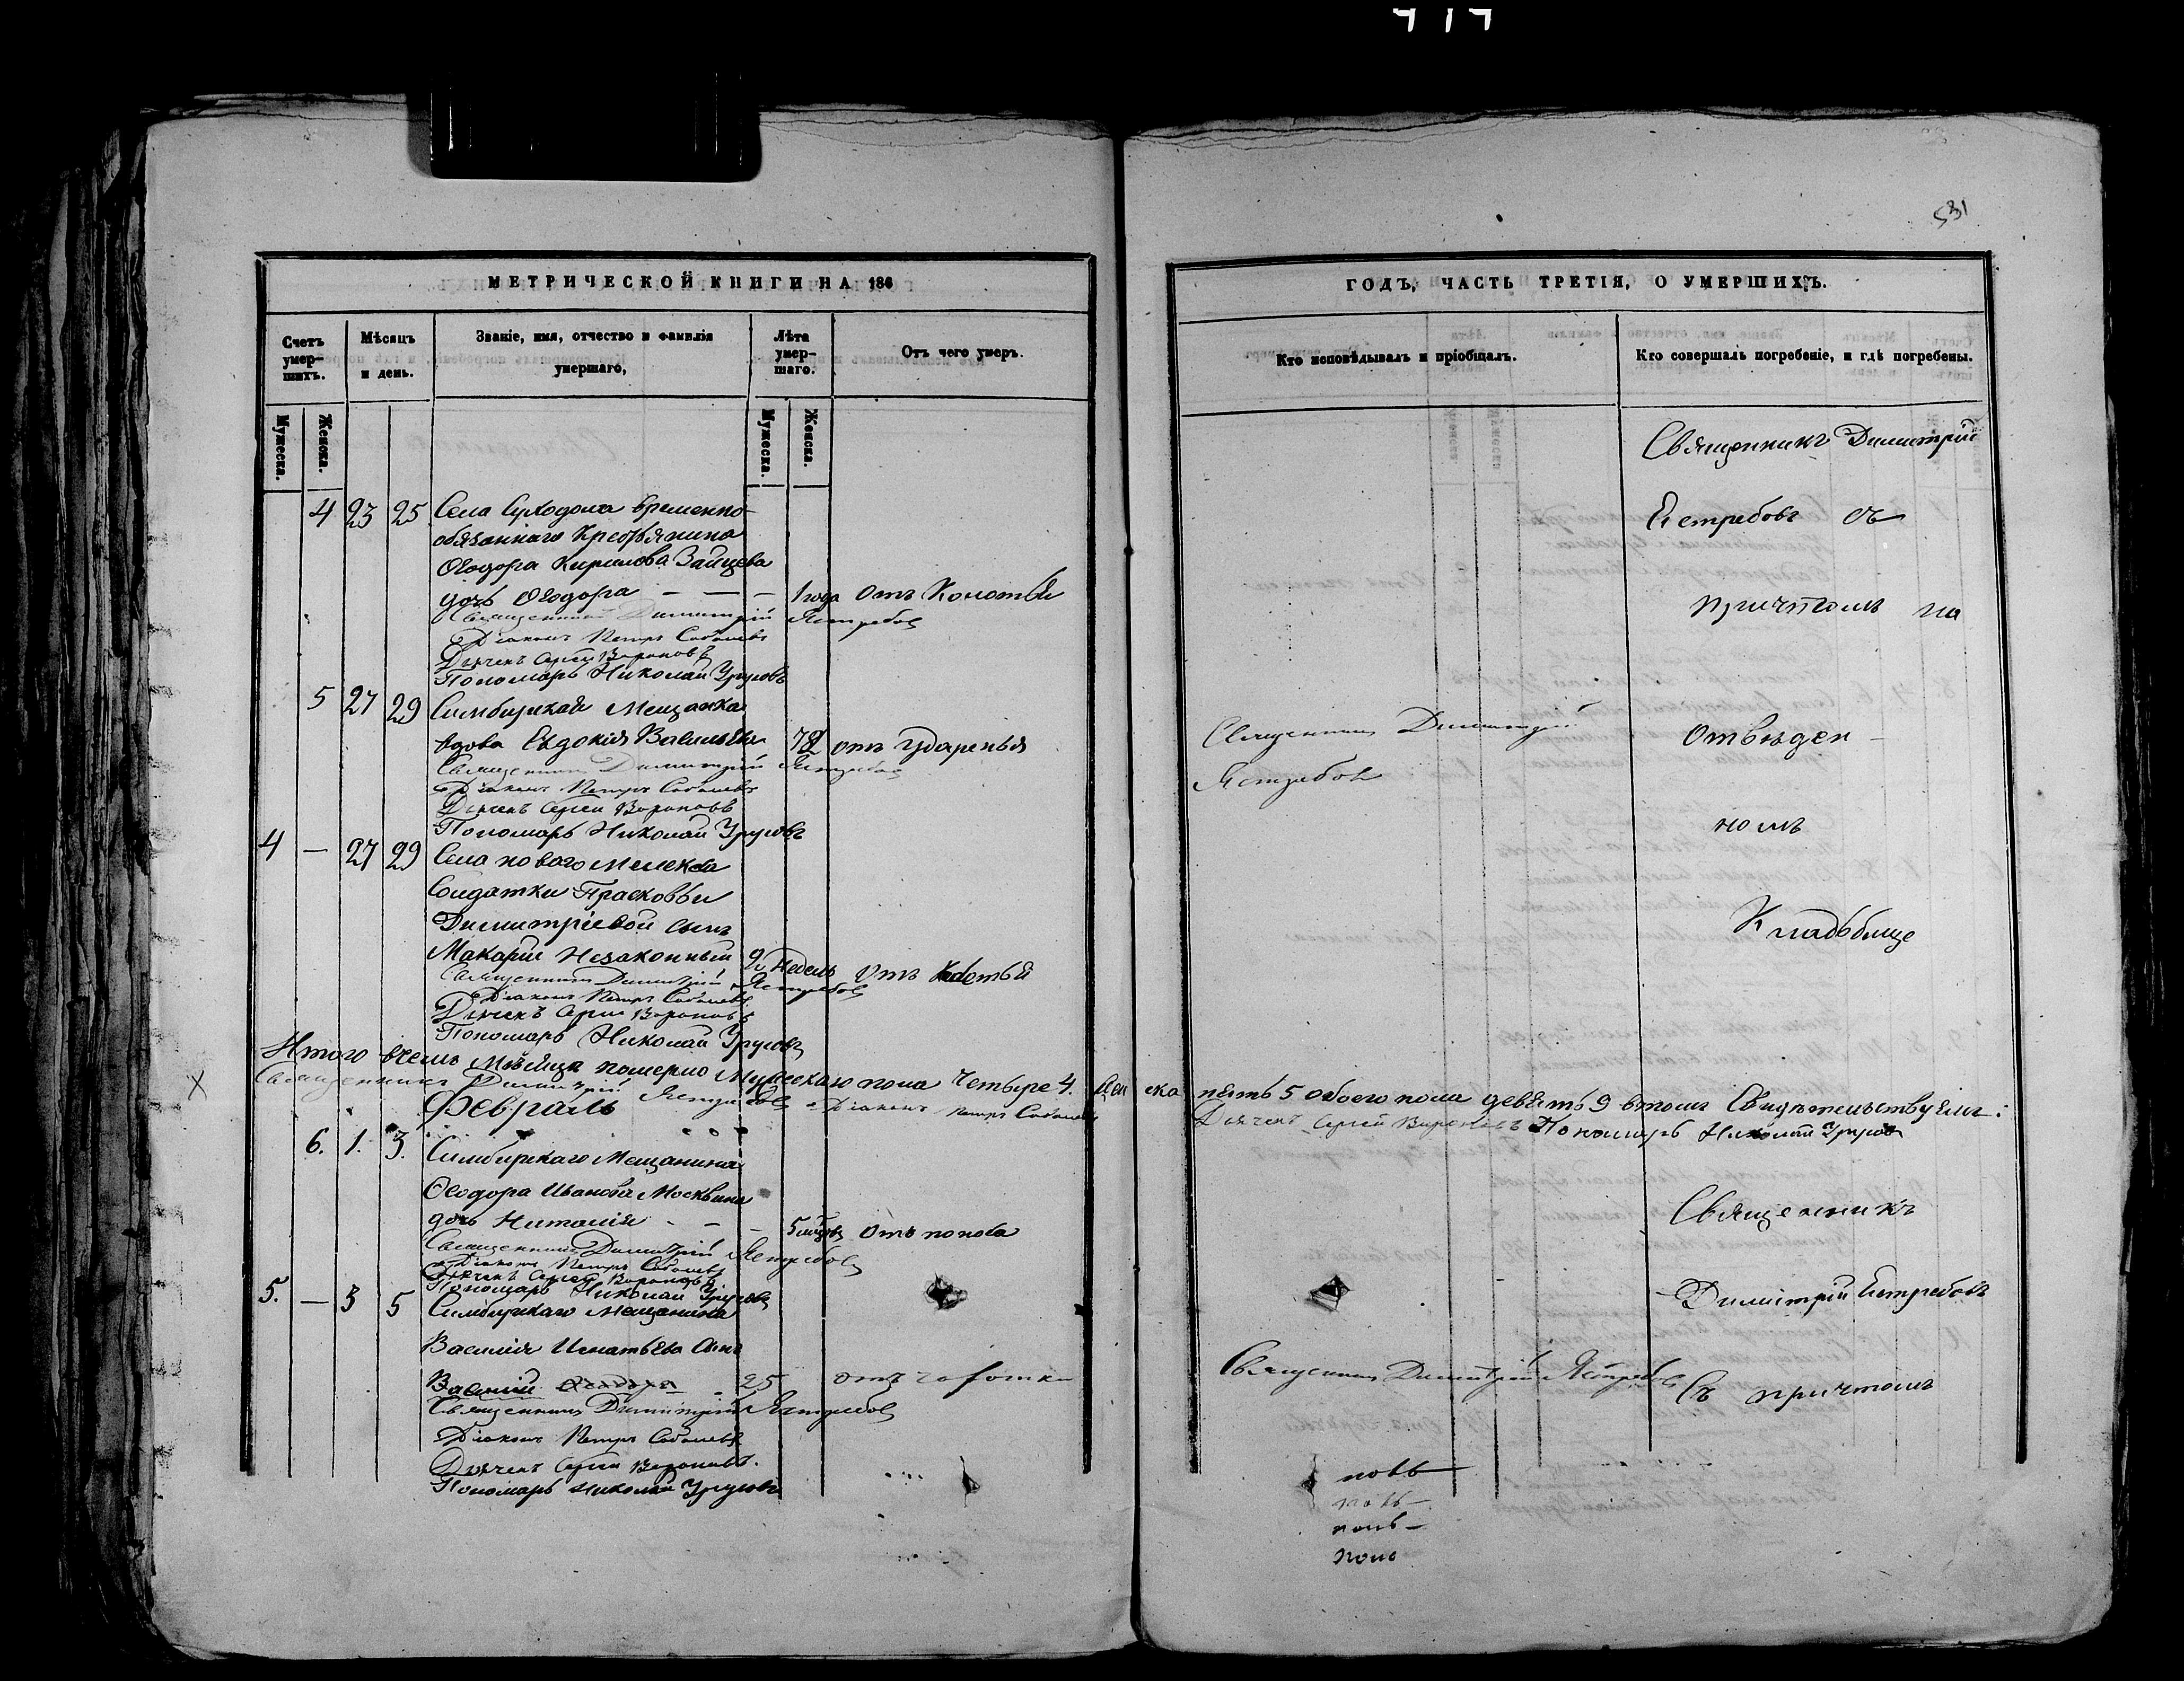 531
МЕТРИЧЕСКОЙ КНИГИ НА 186
Счетъ умерших.
Мѣсяцъ и день.
Званіе, имя, отчество и фамилія умершаго,
Лѣта умершаго.
Отъ чего умеръ.
Мужеска.
Женска.
Мужеска.
Женска.
4 23 25 Села Суходола временно-
обязаннаго Крестьянина
Ѳеодора Кирилова Зайцева
дочь Ѳеодора — — — 1 года отъ Коготьи
Священникъ Димитрій Ястребовъ
Діаконъ Петръ Соболевъ
Дьячекъ Сергей Вороновъ
Пономарь Николай Урусовъ
5 27 29 Симбирская Мещанка
вдова Евдокія Васильева 78 отъ ударенья
Священникъ Димитрій Ястребовъ
Діаконъ Петръ Соболевъ
Дьячекъ Сергей Вороновъ
Пономарь Николай Урусовъ
4 — 27 29 Села новаго Мелекеса
Солдатки Прасковьи
Димитріевой сынъ
Макарій Незаконный 2 недель Отъ
Священникъ Димитрій Ястребовъ
Діаконъ Петръ Соболевъ
Дьячекъ Сергей Вороновъ
Пономарь Николай Урусовъ
Итого в семъ Мѣсяцѣ померло Мужескаго пола Четыре 4. Женска
Священникъ Димитрій Ястребовъ Діаконъ Петръ Соболевъ
Февраль
6. 1. 3. Симбирскаго Мещанина
Ѳеодора Иванова Москвина
дочь Наталія - — - 5 мѣсяц отъ поноса
Священникъ Димитрій Ястребовъ
Діаконъ Петръ Соболевъ
Дьячекъ Сергей Вороновъ
Пономарь Николай Урусовъ
5. — 3 5 Симбирскаго Мещанина
Василія Игнатьева Сынъ
Василій 25 отъ чахотки
Священникъ Димитрій Ястребовъ
Діаконъ Петръ Соболевъ
Дьячекъ Сергей Вороновъ.
Пономарь Николай Урусовъ
ГОДЪ, ЧАСТЬ ТРЕТІЯ, О УМЕРШИХЪ.
Кто исповѣдывалъ и пріобщалъ.
Кто совершалъ погребеніе, и гдѣ погребены.
Священникъ Димитрій
Ястребовъ съ
причтомъ на
Священникъ Димитрій
Ястребовъ
отвѣден-
номъ
Кладьбище
пять 5 обоего пола девять 9 втомъ Свидѣтельствуемъ:
Дьячекъ Сергей Вороновъ Пономарь Николай Урусовъ
Священникъ
Димитрій Ястребовъ
Священникъ Димитрій Ястребовъ
Съ причтомъ